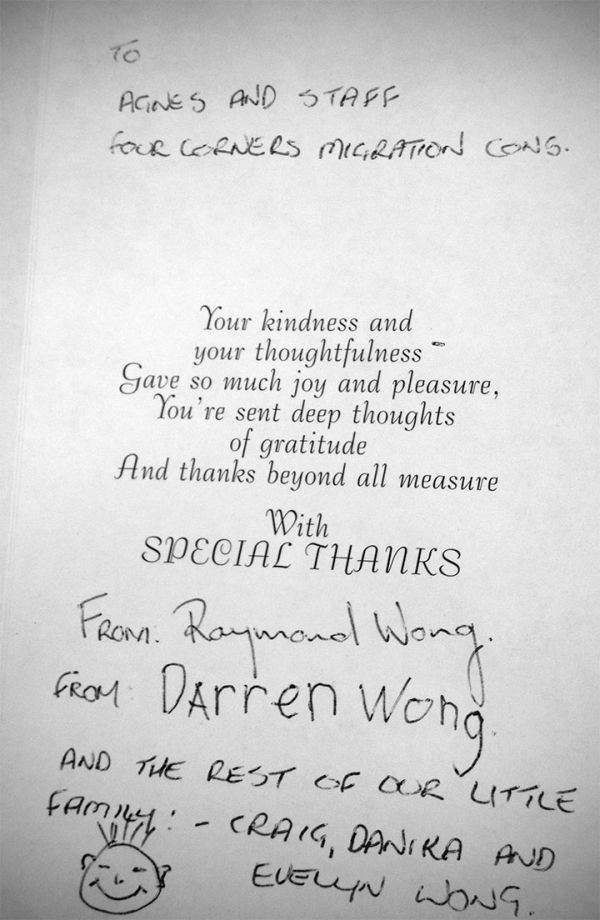 TO
AGNES AND STAFF
FOUR CORNERS MIGRATION CONS.
Your kindness and
your thoughtfulness
Gave so much joy and pleasure,
You're sent deep thoughts
of gratitude
And thanks beyond all measure
With
SPECIAL THANKS
FROM: Raymond Wong.
FROM: DArren Wong.
AND THE REST OF OUR LITTLE
FAMILY: - CRAIG, DANIKA AND
EVELLYN WONG.